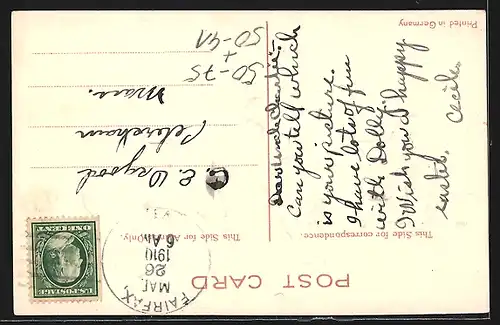 POST CARD
This Side for correspondence.
This Side for Address Only.
Printed in Germany
Can you tell which
is your picture.
I have lots of fun
with Dolly.
I Wish you a happy
easter. Cecile.
Petersham
Mass.
50-75
+
50-4A
FAIRFAX,
MAR
26
6 AM
1910
U.S. POSTAGE
ONE CENT